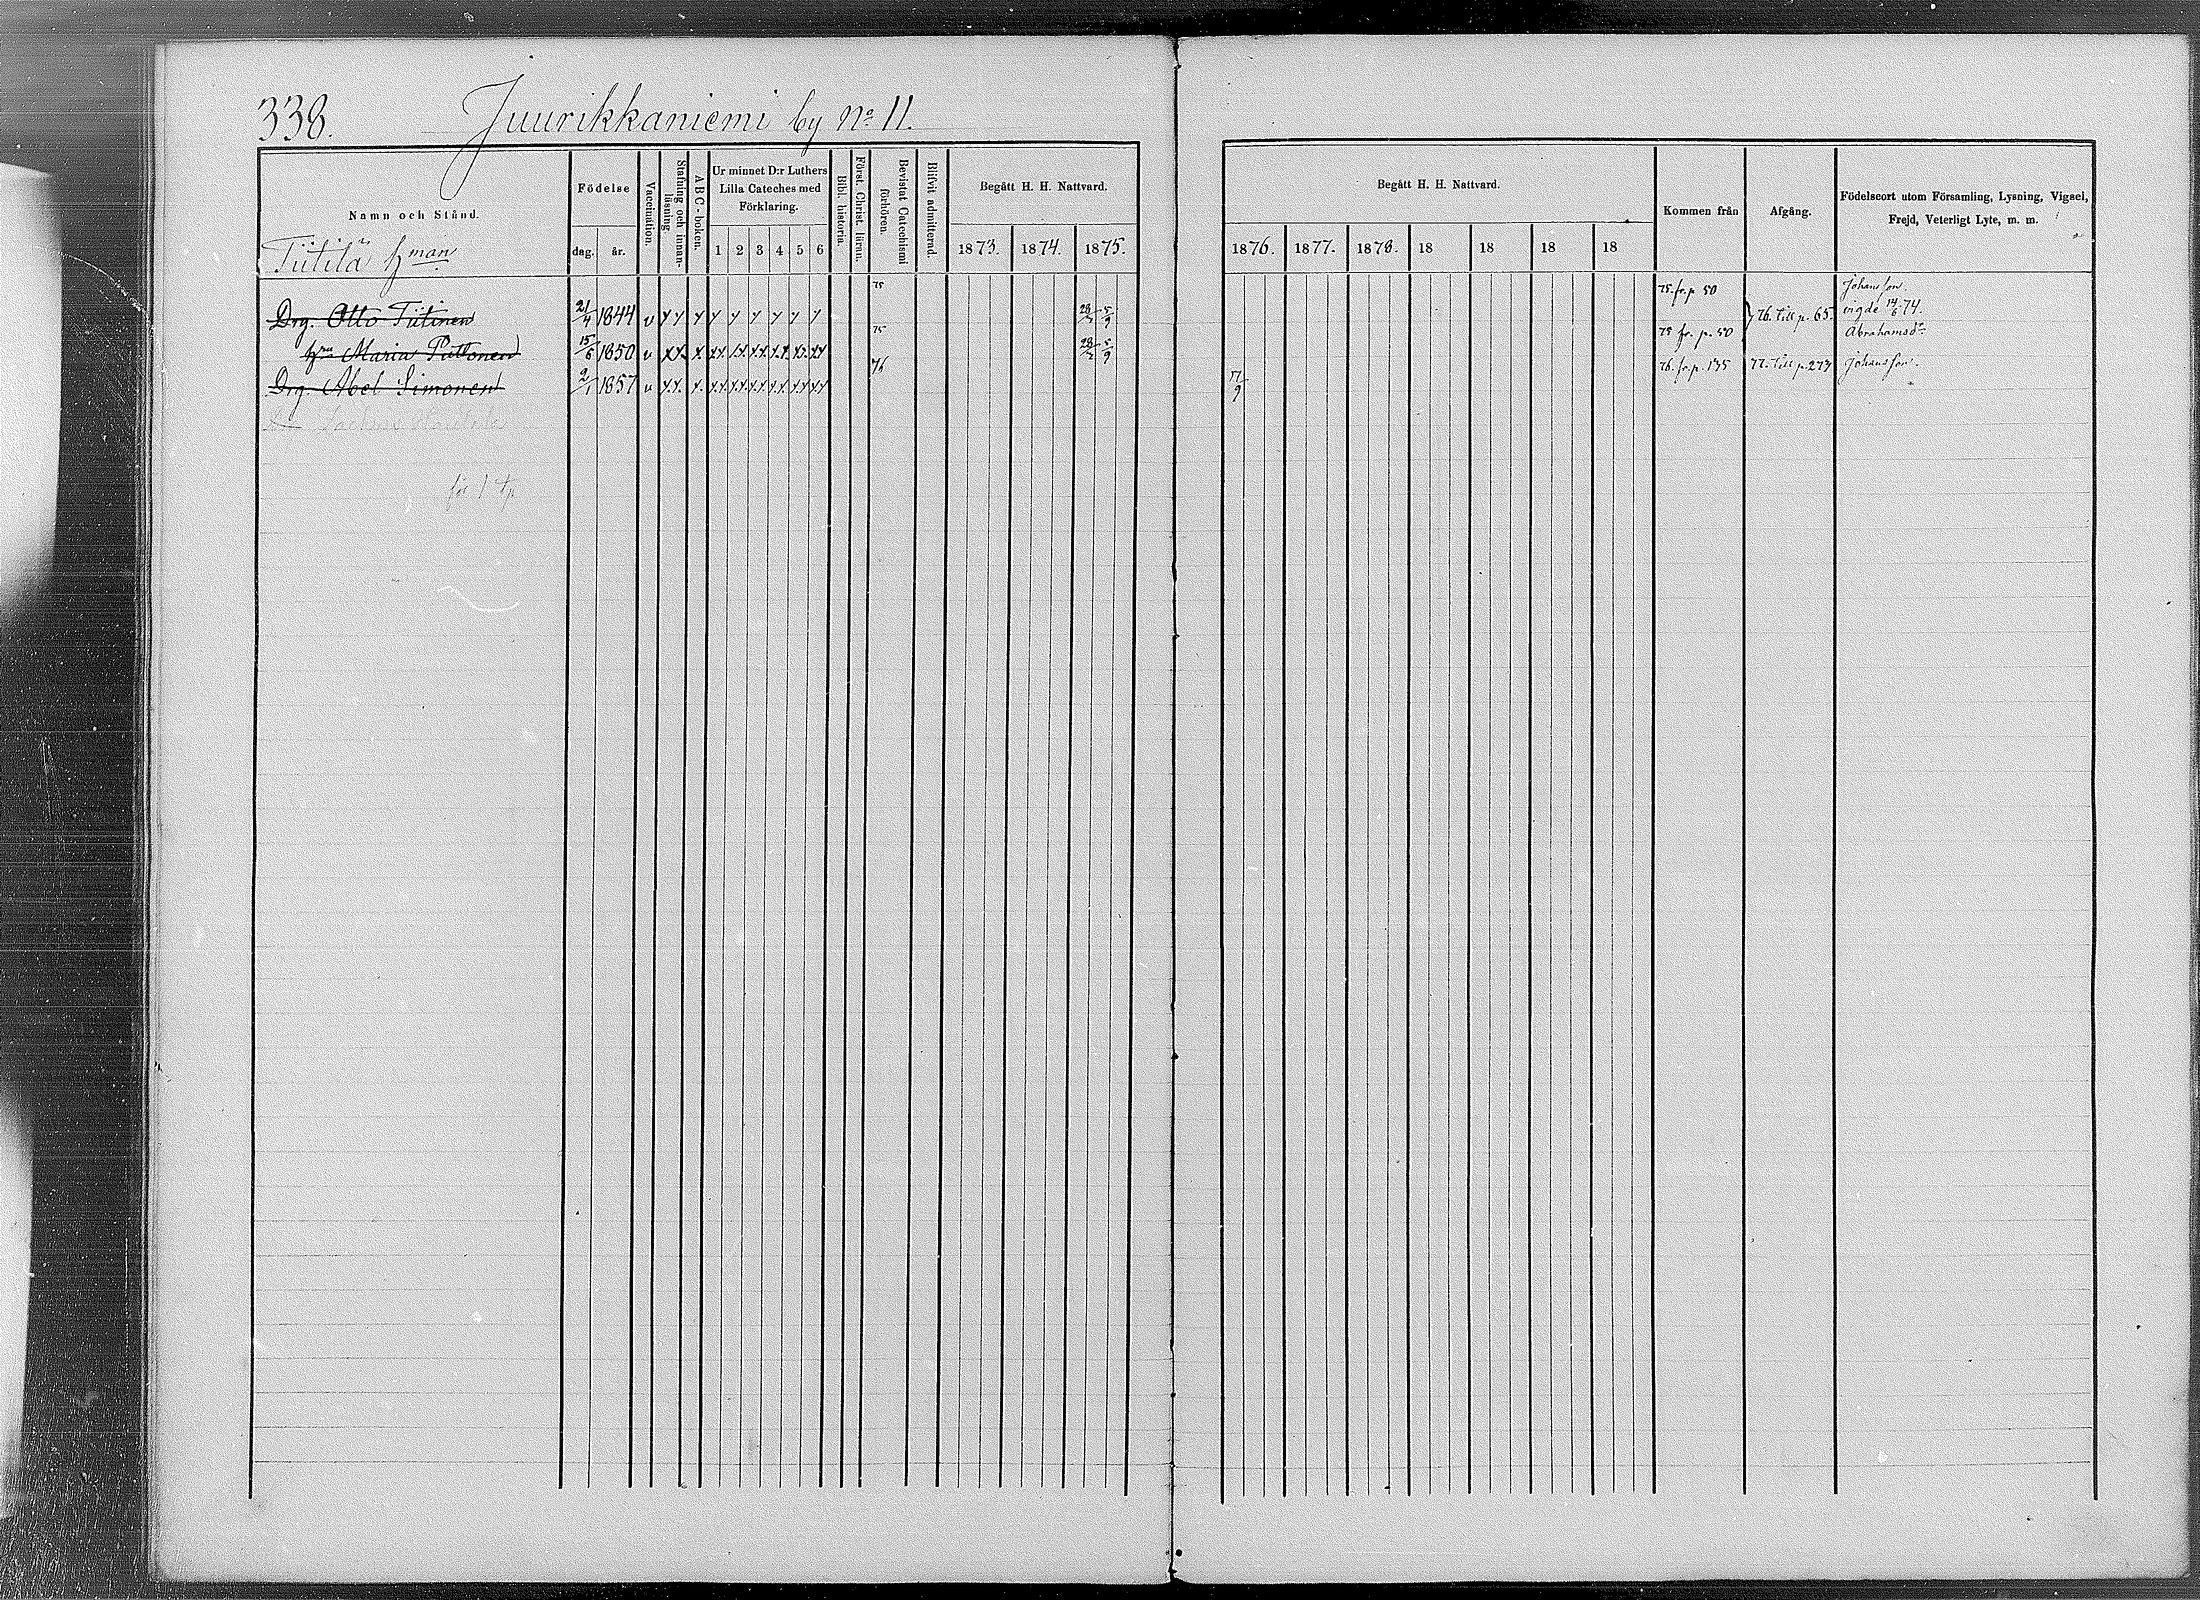 338.
Juurikkaniemi by No 11.
Namn och Stånd.
Födelse
dag.
år.
Vaccination.
Stafning och innan-läsning
A B C-boken.
Ur minnet D:r Luthers
Lilla Cateches med
Förklaring.
1 2 3 4 5 6
Bibl. historia.
Först. Christ. lärän.
Bevistat Catechismi förhören.
Blifvit admitterad.
Begått H. H. Nattvard.
1873. 1874. 1875.
Begått H. H. Nattvard.
1876. 1877. 1878. 18 18 18 18
Kommen från
Afgång.
Födelseort utom Församling, Lysning, Vigsel,
Frejd, Veterligt Lyte, m. m.
Tiitilä hman
75 75. fr. p 50 Johansson.
Drg. Otto Tiitinen 21/4 1844 v y y y y y y y y y 28/3 5/9 76. till p. 65. vigde 14/6 74.
75 75 fr. p. 50 Abrahamsdr
hru Maria Puttonen 15/6 1850 v xx. x. xx xx xx xx xx xx 28/3 5/9
76 76. fr. p. 135 77. till p. 273 Johansson.
Drg. Abel Simonen 2/1 1857 v xx. x. xx xx xx xx xx xx 17/9
för 1